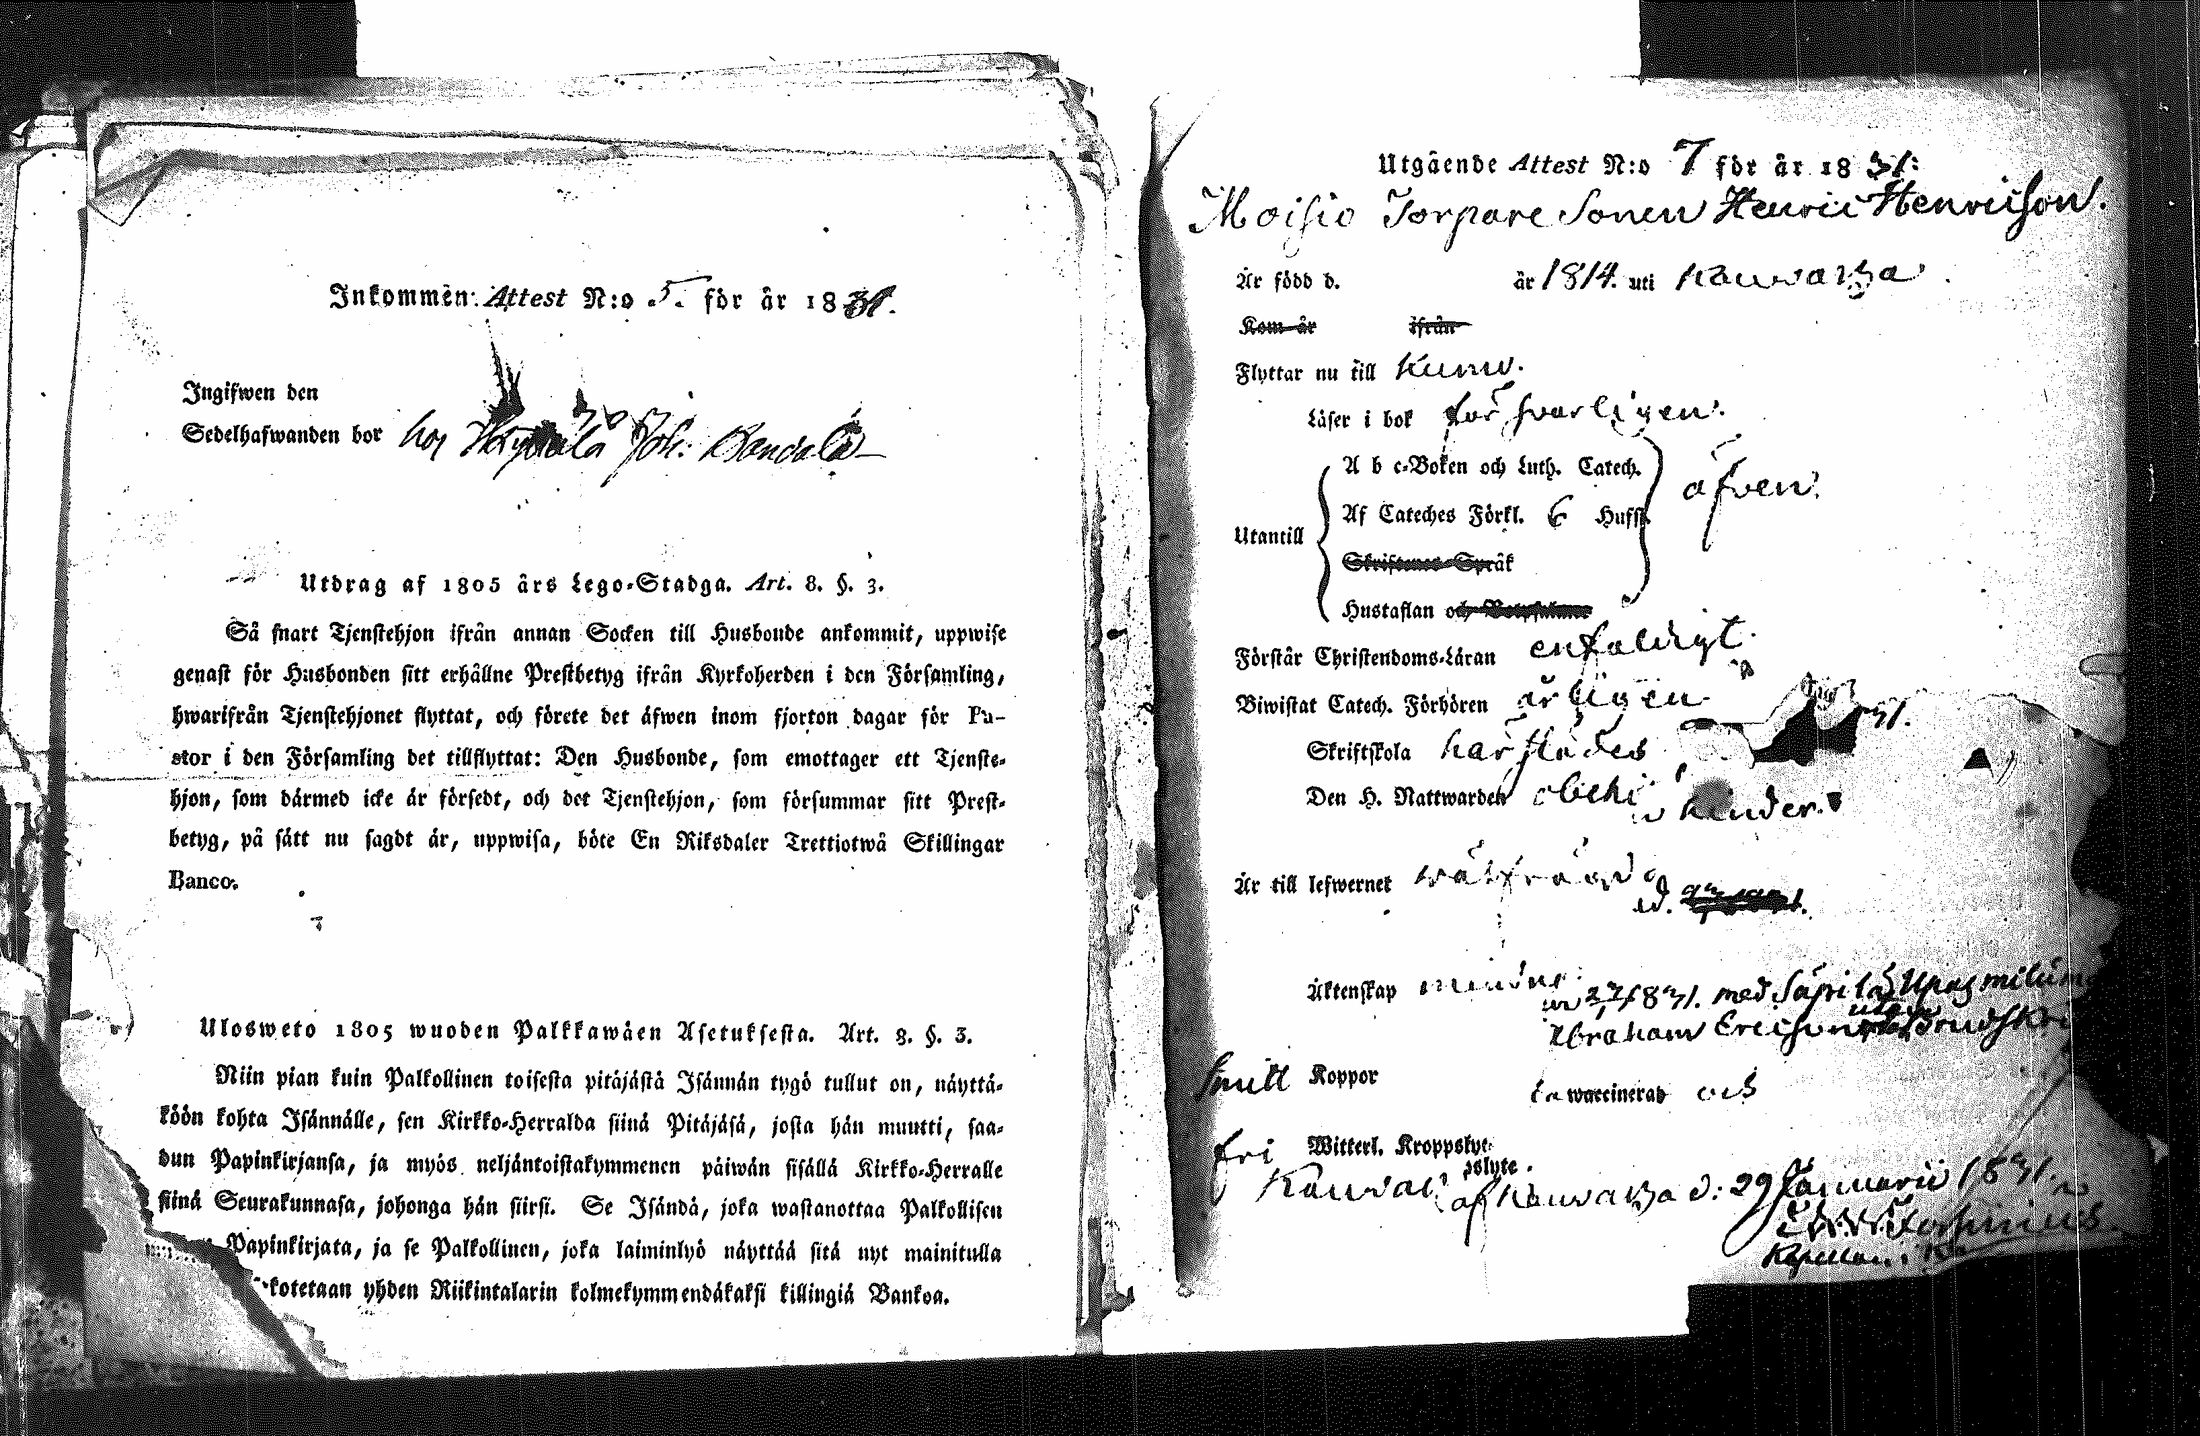 Inkommen Attest N:o 5. för år 1831.
Ingifwen den
Sedelhafwanden bor hos Joh:
Utdrag af 1805 års Lego-Stadga. Art. 8. §. 3.
Så snart Tjenstehjon ifrån annan Socken till Husbonde ankommit, uppwise
genast för Husbonden sitt erhållne Prestbetyg ifrån Kyrkoherden i den Församling,
hwarifrån Tjenstehjonet flyttat, och förete det äfwen inom fjorton dagar för Pa-
stor i den Församling det tillflyttat: Den Husbonde, som emottager ett Tjenste-
hjon, som därmed icke är försedt, och det Tjenstehjon, som försummar sitt Prest-
betyg, på sätt nu sagdt är, uppwisa, böte En Riksdaler Trettiotwå Skillingar
Banco.
Ulosweto 1805 wuoden Palkkawäen Asetuksesta. Art. 8. §. 3.
Niin pian kuin Palkollinen toisesta pitäjästä Isännän tygö tullut on, näyttä-
köön kohta Isännälle, sen Kirkko-Herralda siinä Pitäjäsä, josta hän muutti, saa-
dun Papinkirjansa, ja myös neljäntoistakymmenen päiwän sisällä Kirkko-Herralle
siinä Seurakunnasa, johonga hän siirsi. Se Isändä, joka wastanottaa Palkollisen
Papinkirjata, ja se Palkollinen, joka laiminlyö näyttää sitä nyt mainitulla
kotetaan yhden Riikintalarin kolmekymmendäkaksi killingiä Bankoa.
Utgående Attest N:o 7 för år 1831:
Moisio Torpare Sonen Henric Henricsson.
Är född d. år 1814. uti Kauvatza
Kom år ifrån
Flyttar nu till Kumo.
Läser i bok försvarligen.
A b c-Boken och Luth. Catech. äfven.
Af Cateches Förkl. 6 Hufst.
Utantill
Skriftenes Språk
Hustaflan och
Förstår Christendoms-Läran enfaldigt.
Biwistat Catech. Förhören årligen
Skriftskola härstädes 31.
Den H. Nattwarden obehindrad
Är till lefwernet
Äktenskap 1831. med
Abraham Ericsson
Smitt Koppor waccinerad och
fri Witterl. Kroppslyt
slyte.
af Kauvatza d: 29 Januarii 1831.
Kapellan.